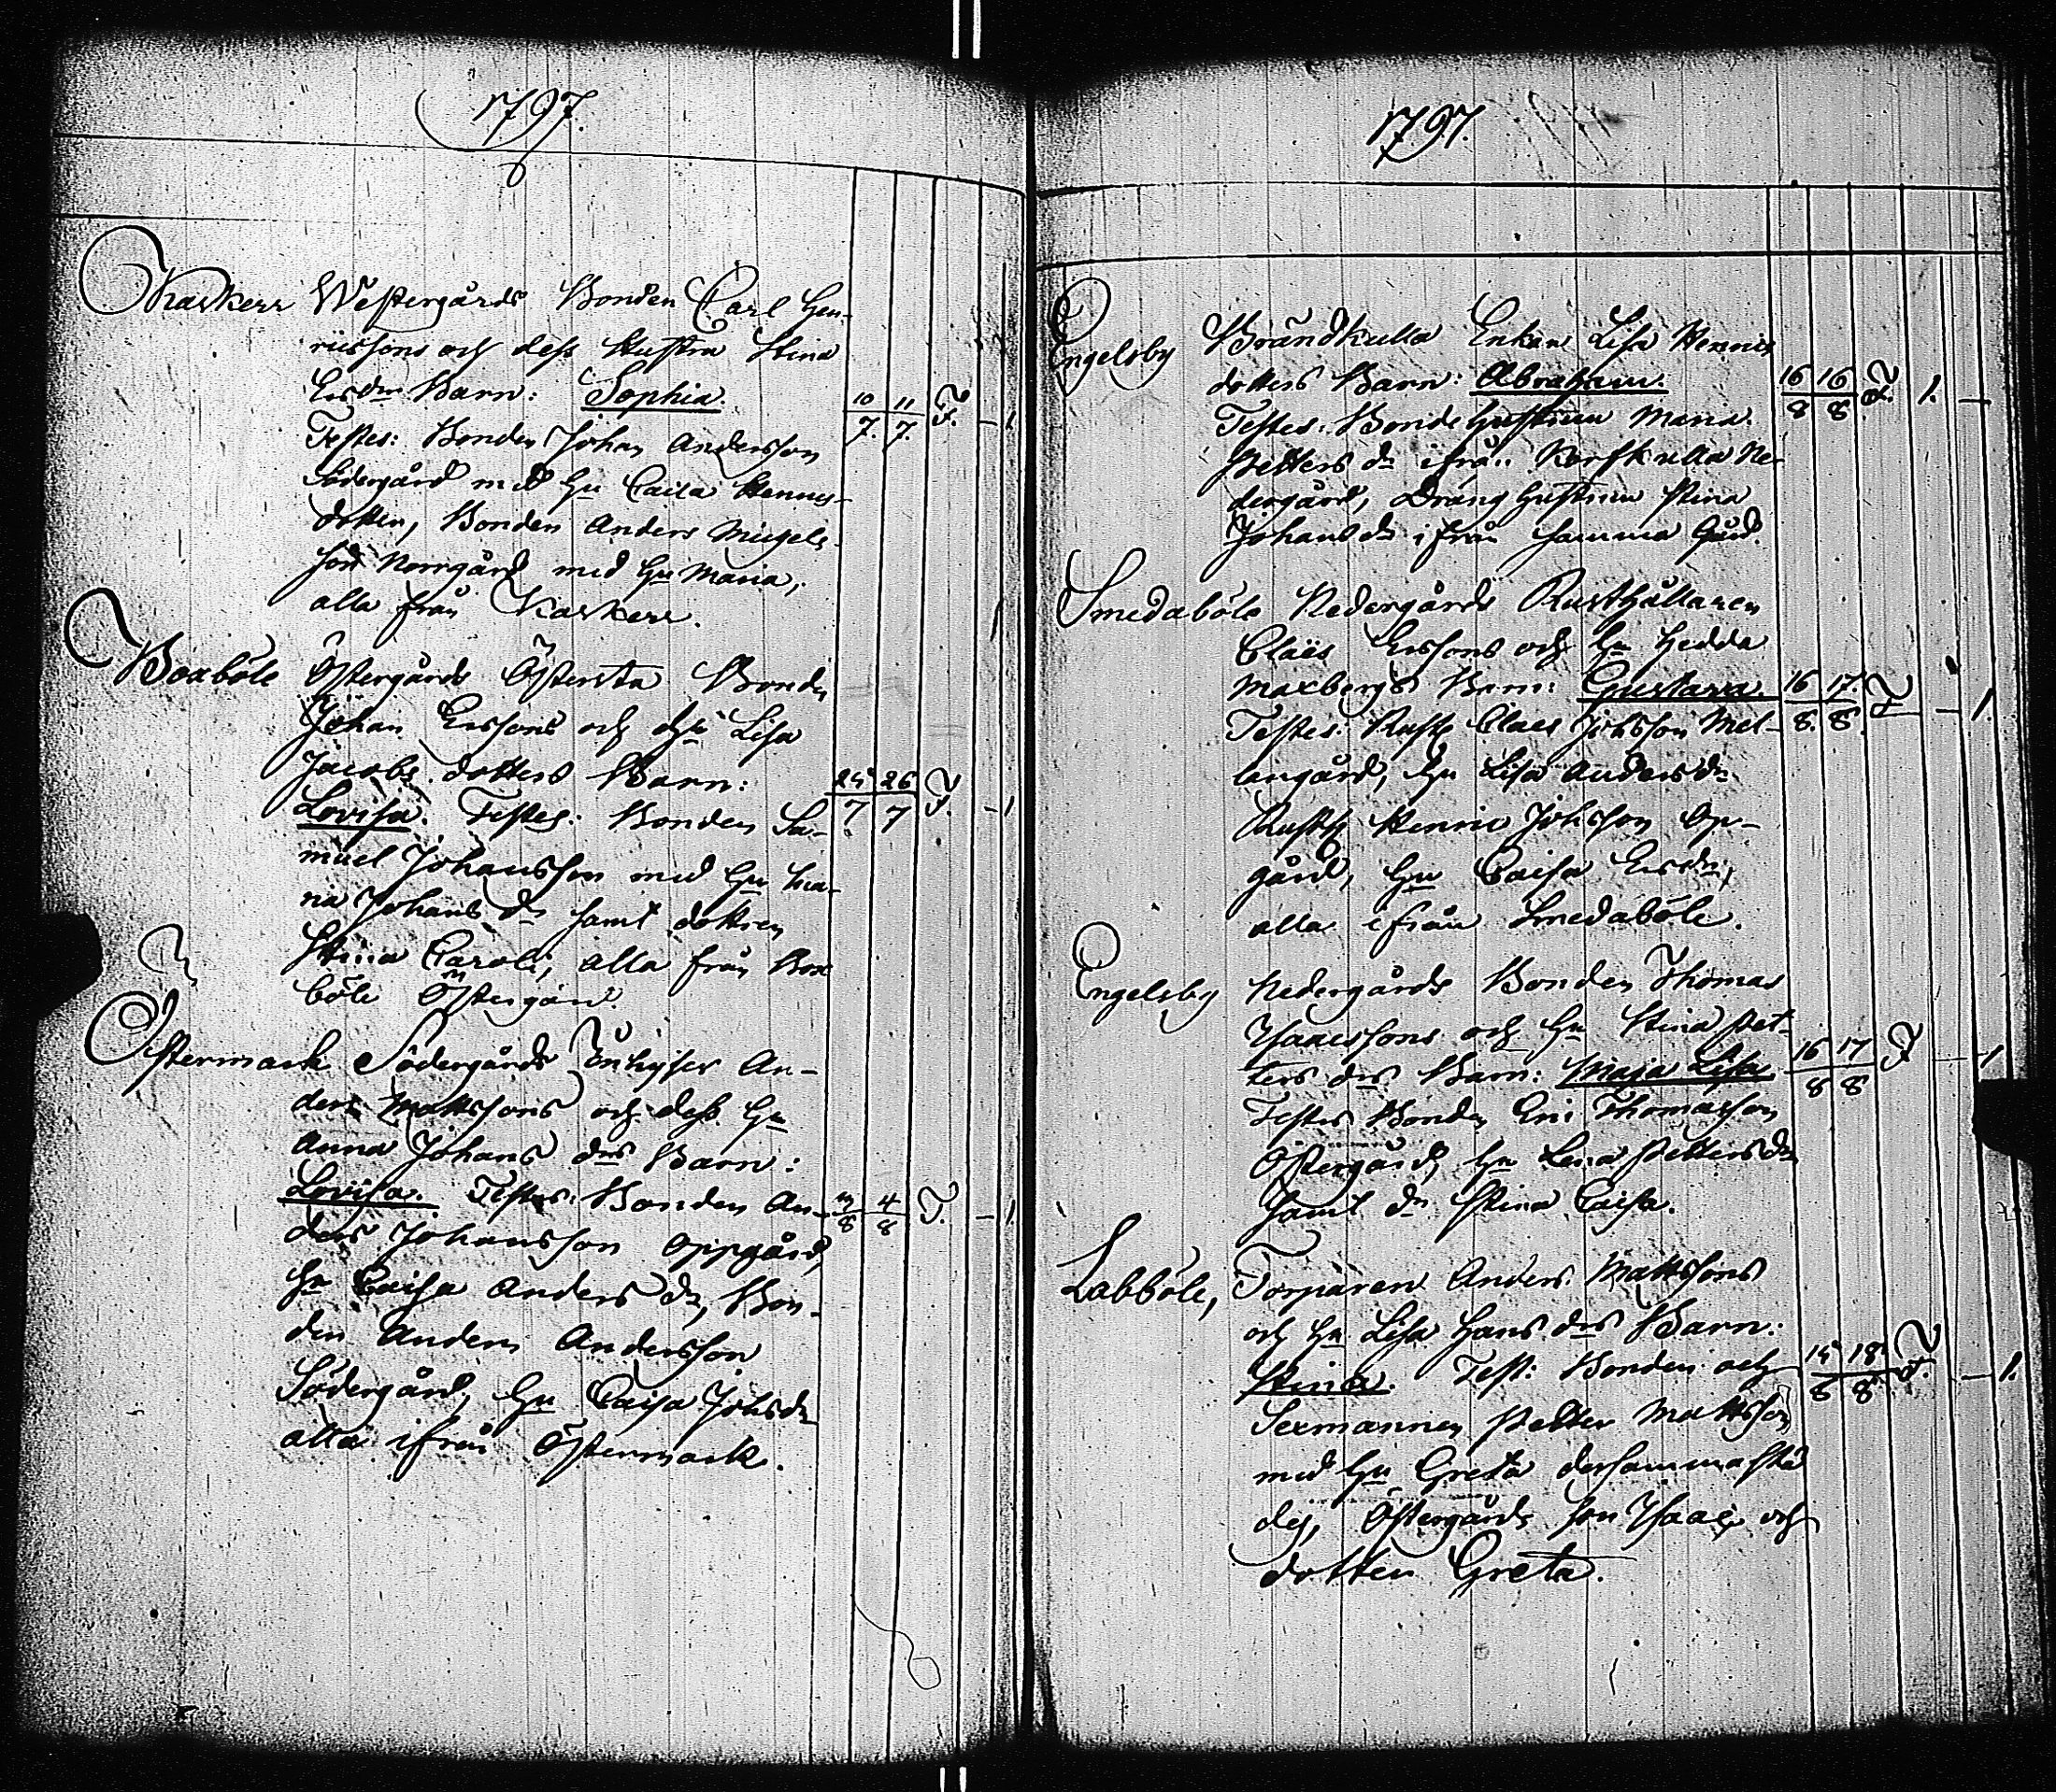 1797.
Karkerr Westergårds Bonden Carl Hen-
ricssons och dess Hustru Stina
Ersdrs Barn: Sophia. 10/7. 11/7. F. - 1
Testes: Bonden Johan Andersson
Södergård med Hu Caisa Henrics-
dotter, Bonden Anders Michels-
son Norrgård med Hu Maria,
alla från Karkerr.
Boxböle Östergårds Östersta Bonden
Johan Erssons och Hu Lisa
Jacobs dotters Barn:
Lovisa. Testes: Bonden Sa- 25/7. 26/7 F. - 1
muel Johansson med Hu
na Johans dr samt dottren
Stina Caroli, alla från Box
böle Östergård
Östermark Södergårds Inhyses An-
ders Mattssons och dess Hu
Anna Johans drs Barn:
Lovisa. Testes: Bonden An- 3/8 4/8 F. - 1.
ders Johansson Oppgård,
Hu Caisa Anders dr, Bon-
den Anders Andersson
Södergård, Hu Caisa Johsdr
alla ifrån Östermark.
1797.
Engelsby Brändkulla Enkan Lisa Henrics
dotters Barn: Abraham. 16/8 16/8 F. 1. -
Testes: Bonde Hustrun Maria
Petters dr ifrån Korskulla Ne-
dergård, Dräng Hustrun Stina
Johans dr ifrån samma Gård.
Smedaböle Nedergårds Rusthållaren
Claës Erssons och Hu Hedda
Maxbergs Barn: Gustava. 16/8. 17./8. F - 1.
Testes: Rusth Claes Johsson Mel-
langård, Hu Lisa Anders dr
Rusth Henric Johsson Op-
gård, Hu Caisa Ersdr,
alla ifrån Smedaböle.
Engelsby Nedergårds Bonden Thomas
Isaacssons och Hu Stina Pet-
ters drs Barn: Maja Lisa 16/8 17/8 F - 1
Testes Bonden Eric Thomasson
Östergård, Hu Lena Petters dr
samt dr Stina Caisa.
Labböle, Torparen Anders Mattssons
och Hu Lisa Hans drs Barn:
Stina. Test: Bonden och 15/8 18/8 F. - 1.
Sexmannen Petter Mattsson
med Hu Greta dersammastä
des, Östergårds son Isaac och
dotter Greta.